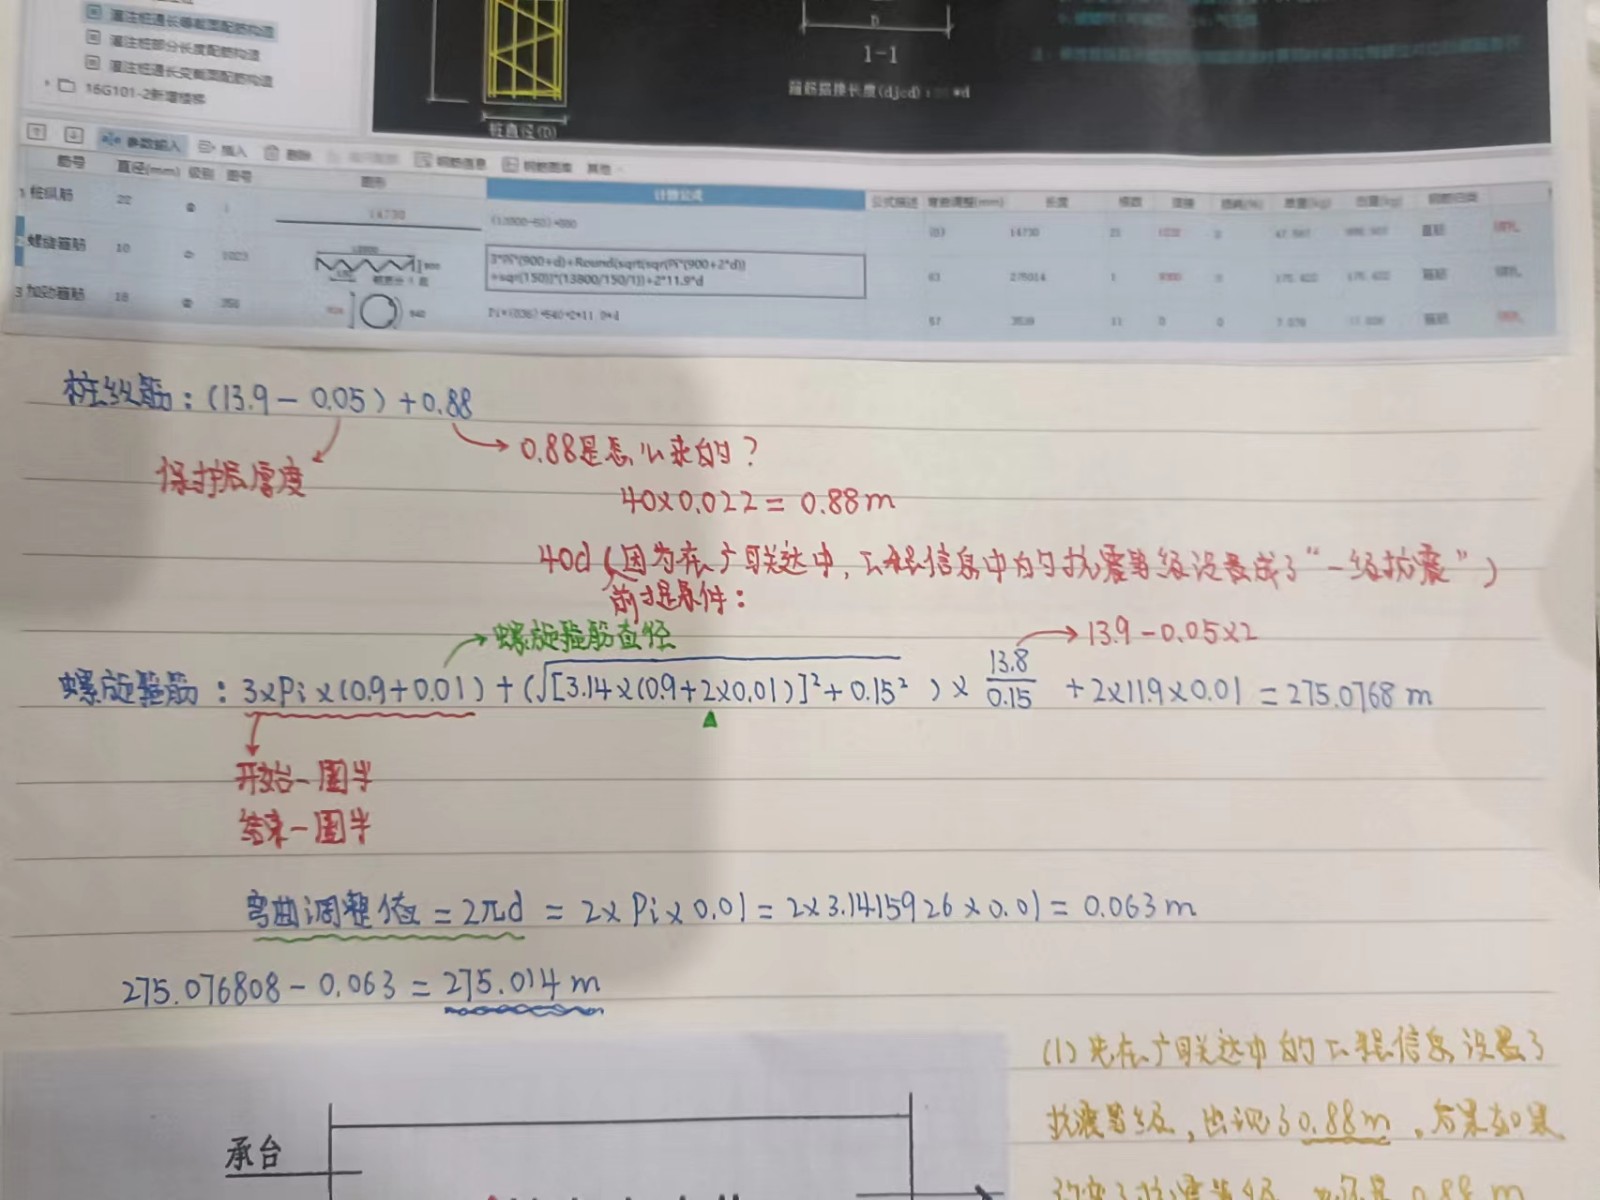 灌注桩通长等截面配筋构造
灌注桩部分长度配筋构造
灌注桩通长变截面配筋构造
16G101-2新增楼梯
桩直径(D)
D
1-1
箍筋搭接长度(djcd): *d
参数输入 插入 删除 钢筋信息 钢筋图库 其他
筋号 直径(mm) 级别 图号 图形 计算公式 公式描述 弯曲调整(mm) 长度 根数 搭接 损耗(%) 单重(kg) 总重(kg) 钢筋归类
1 桩纵筋 22 14730 14730 直筋
2 螺旋箍筋 10 1023 3*Pi*(900+d)+Round(sqrt(sqr(Pi*(900+2*d))
+sqr(150))*(13800/150/1))+2*11.9*d 63 275014 1 箍筋
3 加劲箍筋 18 350 57 11 0 0 箍筋
桩纵筋:(13.9-0.05)+0.88
保护层厚度
0.88是怎么来的?
40×0.022=0.88m
40d(因为在广联达中,工程信息中的抗震等级设置成了“一级抗震”)
前提条件:
螺旋箍筋直径
13.9-0.05×2
螺旋箍筋:3×Pi×(0.9+0.01)+(√[3.14×(0.9+2×0.01)]²+0.15²)×13.8/0.15+2×11.9×0.01=275.0768m
开始一圈半
结束一圈半
弯曲调整值=2πd=2×Pi×0.01=2×3.1415926×0.01=0.063m
275.076808-0.063=275.014m
(1)先在广联达中的工程信息设置了
抗震等级,出现了0.88m,后来如果
承台